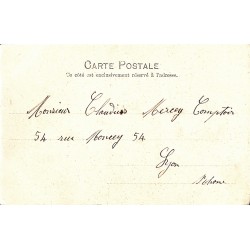 CARTE POSTALE
Ce côté est exclusivement réservé à l'adresse.
Monsieur Claudius Mercey Comptoir
54 rue Moncey 54
Lyon
Rhône